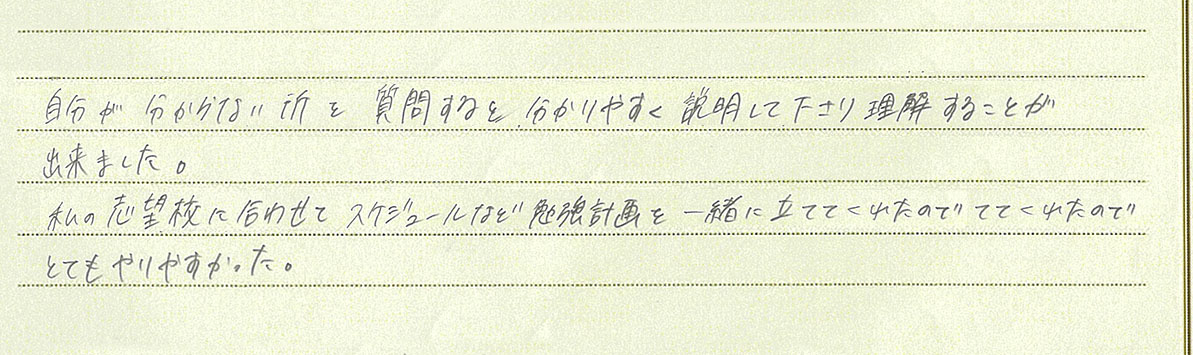 自分が分からない所を質問すると分かりやすく説明して下さり理解することが
出来ました。
私の志望校に合わせてスケジュールなど勉強計画を一緒に立ててくれたのでててくれたので
とてもやりやすかった。